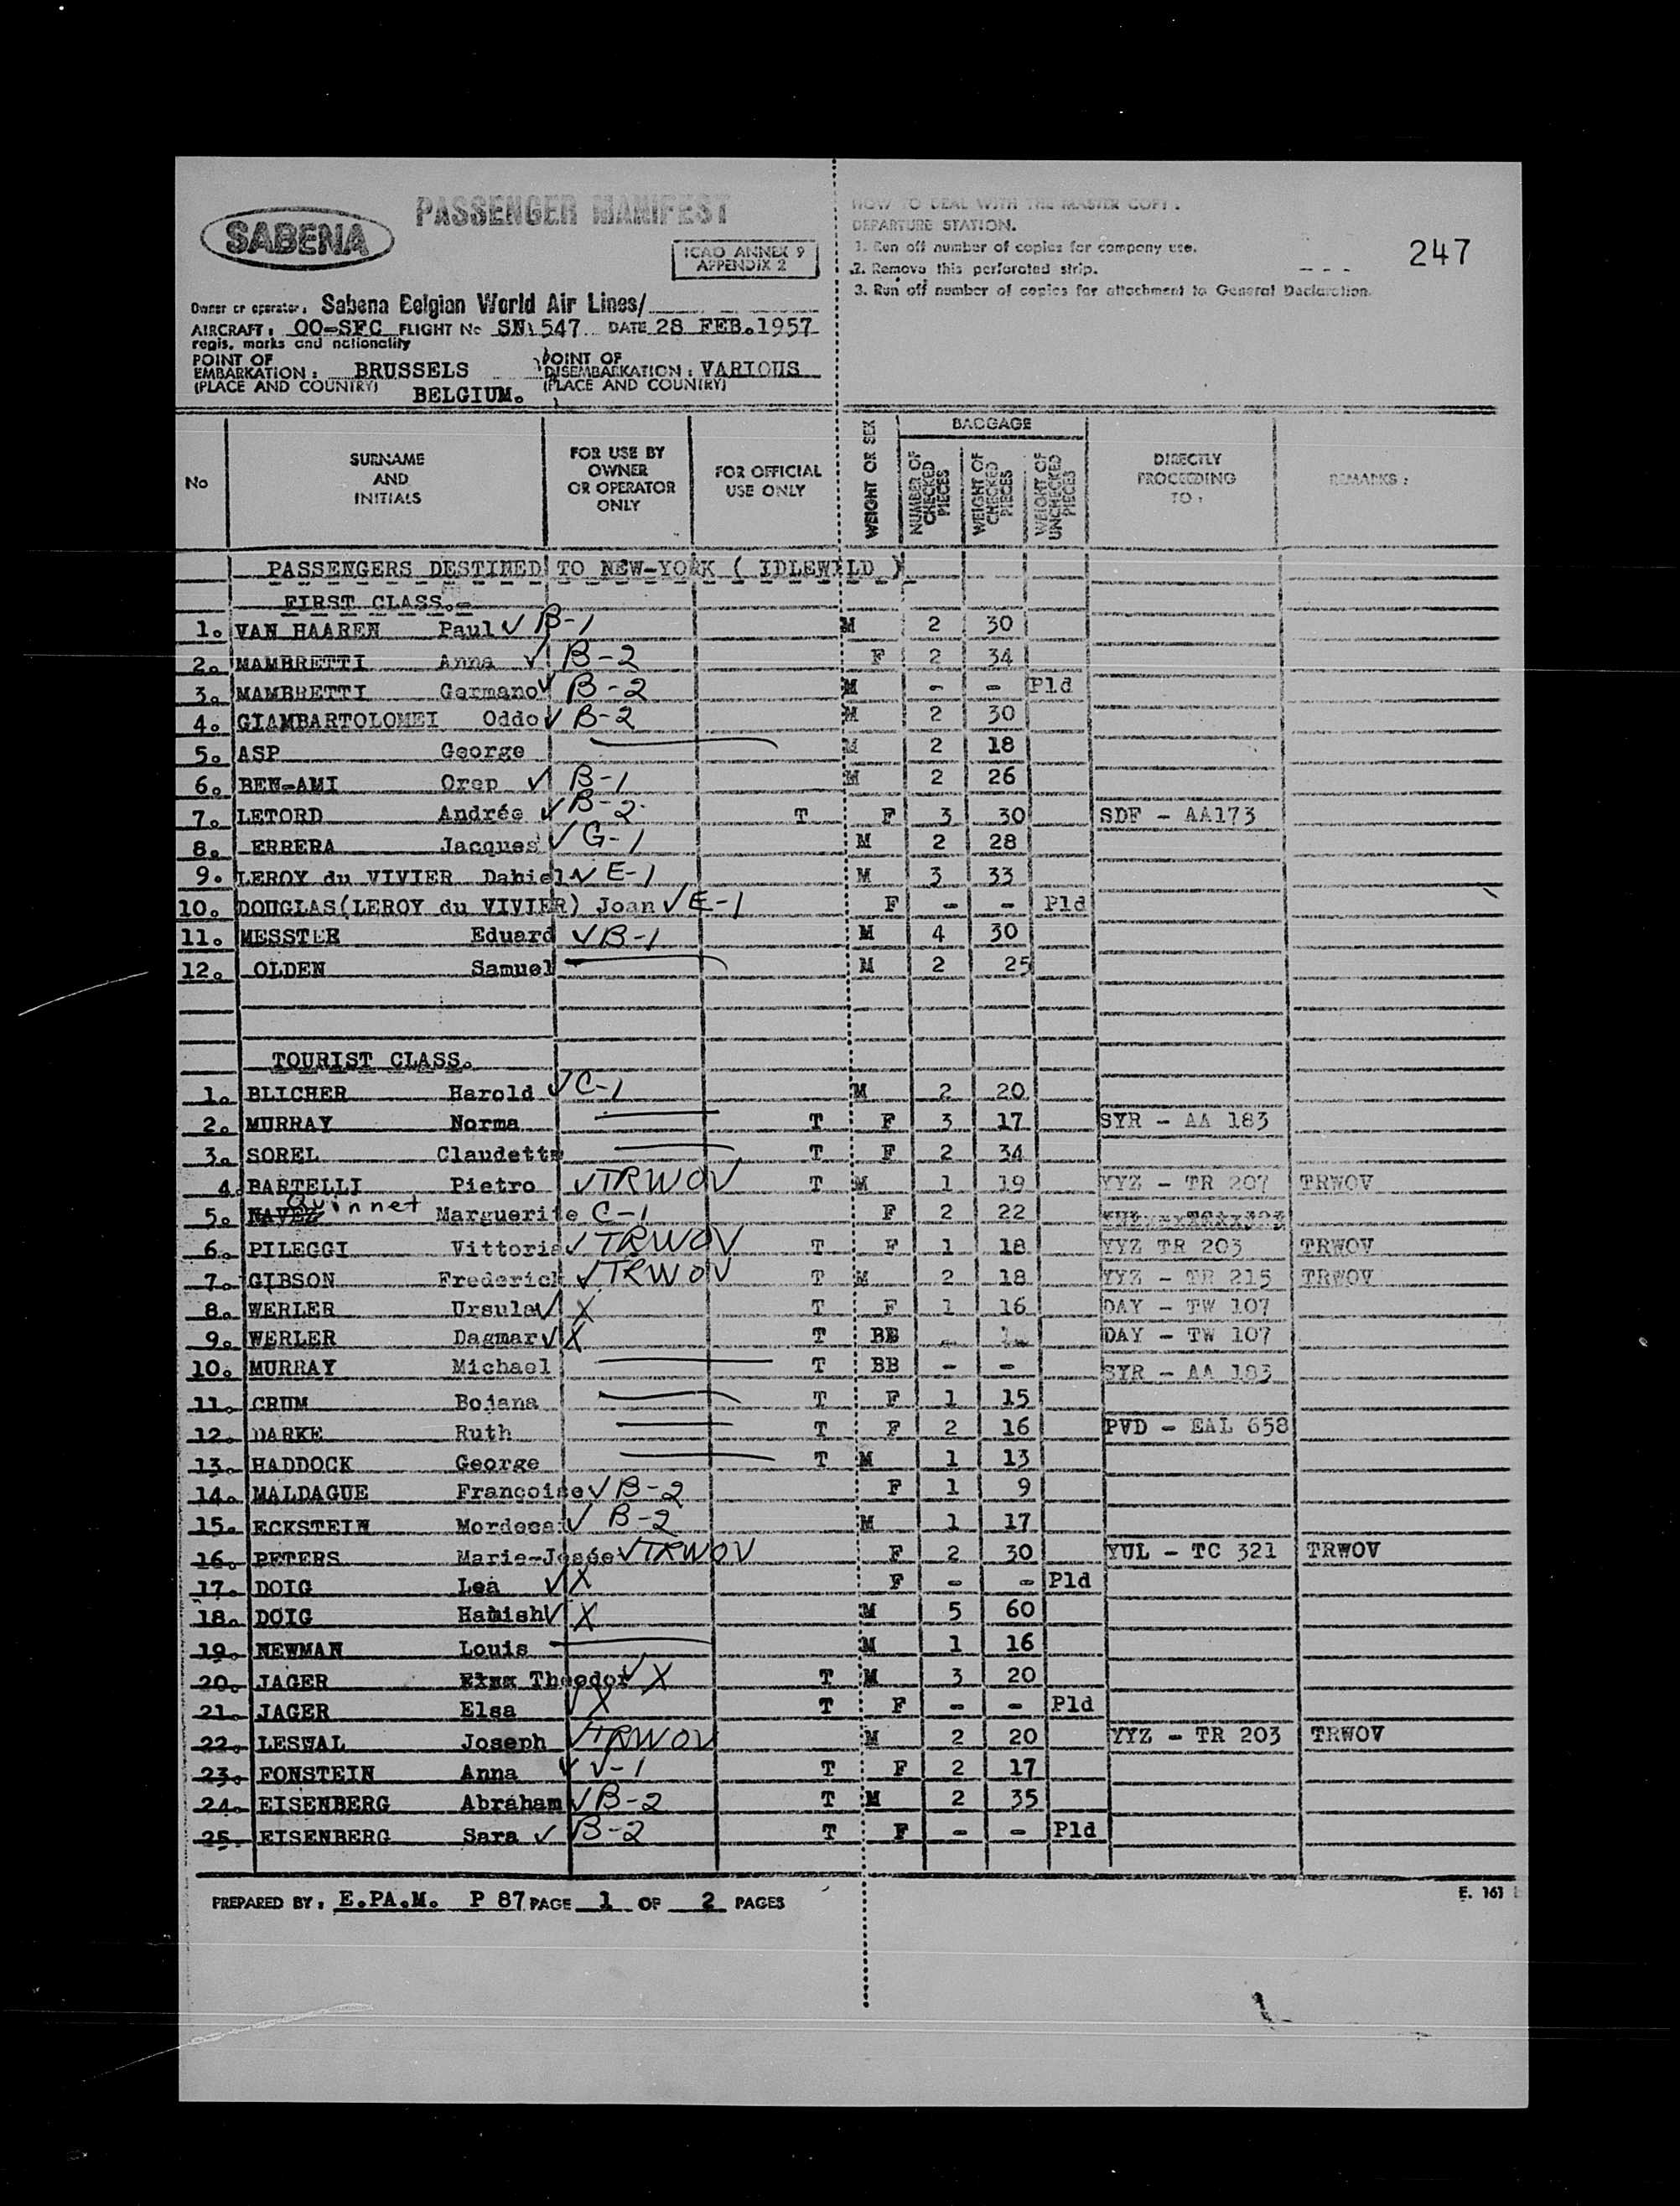 PASSENGER MANIFEST
SABENA
ICAO ANNEX 9
APPENDIX 2
HOW TO DEAL WITH THE MASTER COPY :
DEPARTURE STATION.
1. Run off number of copies for company use.
2. Remove this perforated strip.
3. Run off number of copies for attachment to General Declaration.
247
Owner or operator: Sabena Belgian World Air Lines/
AIRCRAFT: OO-SFC FLIGHT No SN 547 DATE 28 FEB.1957
regis. marks and nationality
POINT OF EMBARKATION: BRUSSELS POINT OF DISEMBARKATION: VARIOUS
(PLACE AND COUNTRY) BELGIUM. (PLACE AND COUNTRY)
No SURNAME AND INITIALS FOR USE BY OWNER OR OPERATOR ONLY FOR OFFICIAL USE ONLY WEIGHT OR SEX BAGGAGE NUMBER OF CHECKED PIECES WEIGHT OF CHECKED PIECES WEIGHT OF UNCHECKED PIECES DIRECTLY PROCEEDING TO: REMARKS:
PASSENGERS DESTINED TO NEW-YORK ( IDLEWILD )
FIRST CLASS.-
1. VAN HAAREN Paul ✓ B-1 M 2 30
2. MAMBRETTI Anna ✓ B-2 F 2 34
3. MAMBRETTI Germano ✓ B-2 M - - Pld
4. GIAMBARTOLOMEI Oddo ✓ B-2 M 2 30
5. ASP George M 2 18
6. BEN-AMI Oren ✓ B-1 M 2 26
7. LETORD Andrée ✓ B-2 T F 3 30 SDF - AA173
8. ERRERA Jacques ✓ G-1 M 2 28
9. LEROY du VIVIER Daniel ✓ E-1 M 3 33
10. DOUGLAS(LEROY du VIVIER) Joan ✓ E-1 F - - Pld
11. MESSTER Eduard ✓ B-1 M 4 30
12. OLDEN Samuel M 2 25
TOURIST CLASS.
1. BLICHER Harold ✓ C-1 M 2 20
2. MURRAY Norma T F 3 17 SYR - AA 183
3. SOREL Claudette T F 2 34
4. BARTELLI Pietro ✓ TRWOV T M 1 19 YYZ - TR 207 TRWOV
5. NAVEZ Quinnet Marguerite C-1 F 2 22
6. PILEGGI Vittoria ✓ TRWOV T F 1 18 YYZ TR 203 TRWOV
7. GIBSON Frederick ✓ TRWOV T M 2 18 YYZ - TR 215 TRWOV
8. WERLER Ursula ✓ X T F 1 16 DAY - TW 107
9. WERLER Dagmar ✓ X T BB - DAY - TW 107
10. MURRAY Michael T BB - - SYR - AA 183
11. CRUM Bojana T F 1 15
12. DARKE Ruth T F 2 16 PVD - EAL 658
13. HADDOCK George T M 1 13
14. MALDAGUE Françoise ✓ B-2 F 1 9
15. ECKSTEIN Mordecai ✓ B-2 M 1 17
16. PETERS Marie-Josée ✓ TRWOV F 2 30 YUL - TC 321 TRWOV
17. DOIG Lea ✓ X F - - Pld
18. DOIG Hamish ✓ X M 5 60
19. NEWMAN Louis M 1 16
20. JAGER Theodor ✓ X T M 3 20
21. JAGER Elsa ✓ X T F - - Pld
22. LESWAL Joseph ✓ TRWOV M 2 20 YYZ - TR 203 TRWOV
23. FONSTEIN Anna ✓ V-1 T F 2 17
24. EISENBERG Abraham ✓ B-2 T M 2 35
25. EISENBERG Sara ✓ B-2 T F - - Pld
PREPARED BY: E.PA.M. P 87 PAGE 1 OF 2 PAGES
E. 161